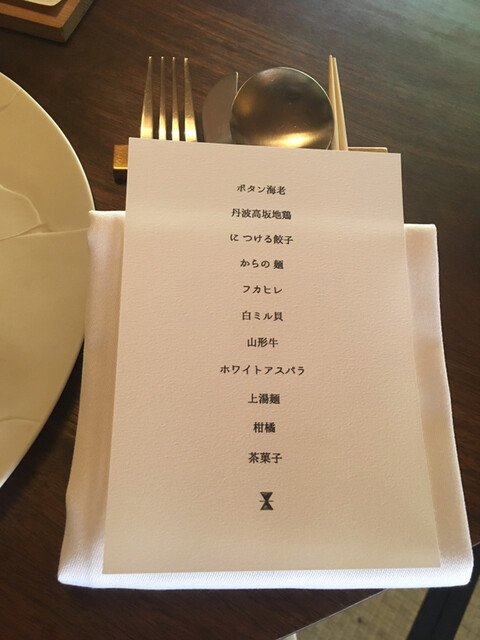 ボタン海老
丹波高坂地鶏
に つける餃子
からの 麺
フカヒレ
白ミル貝
山形牛
ホワイトアスパラ
上湯麺
柑橘
茶菓子